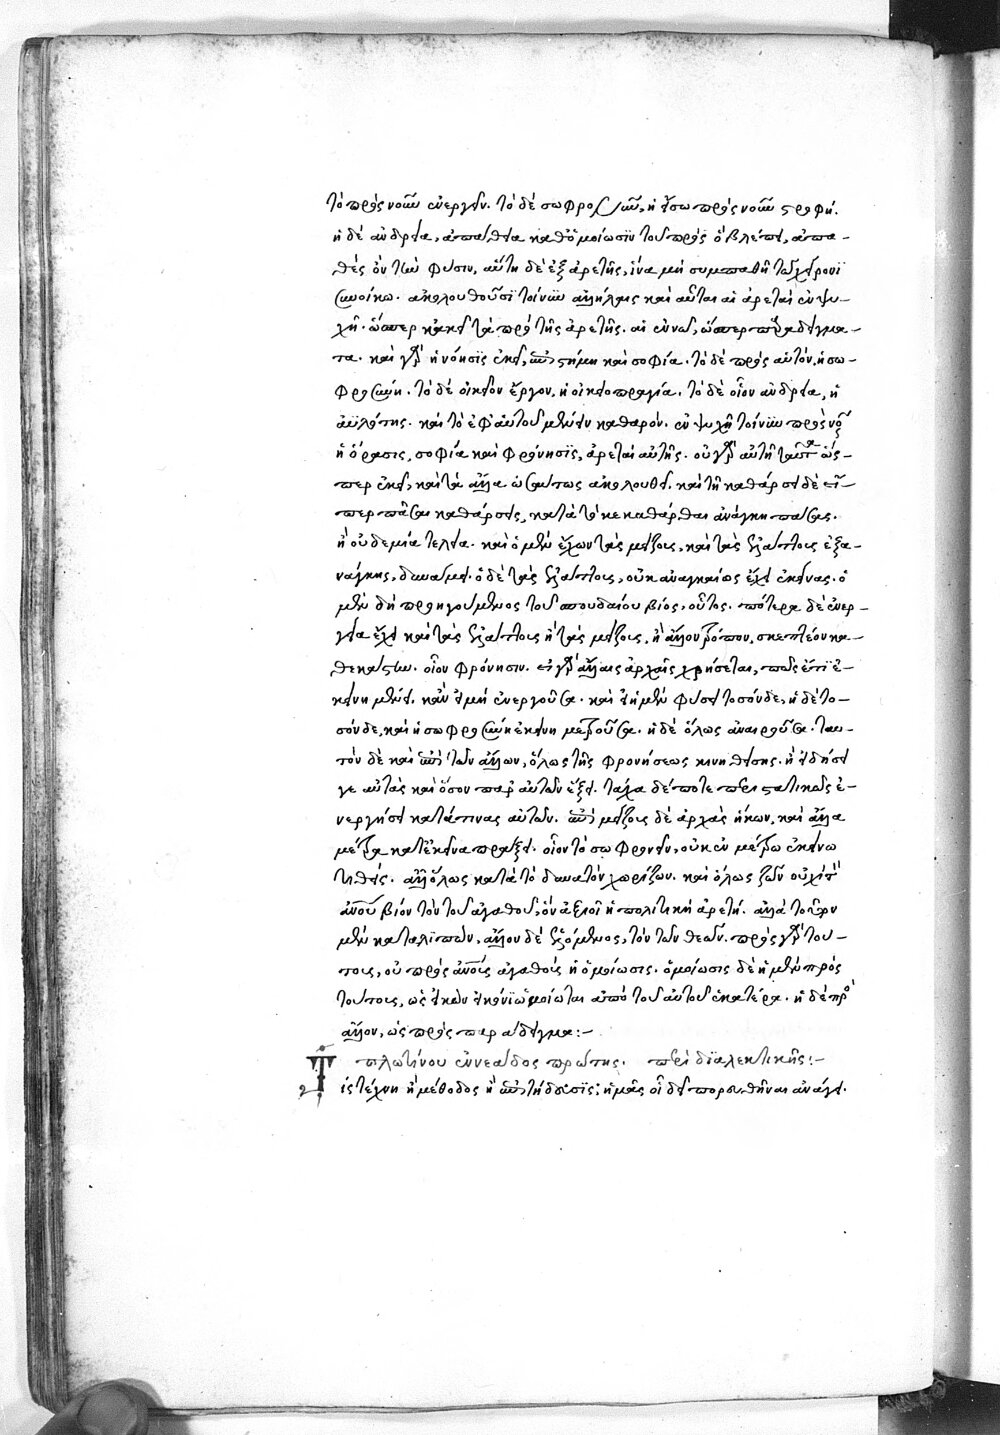 τὸ πρὸς νοῦν ἐνεργεῖν. τὸ δὲ σωφρονεῖν, ἡ εἴσω πρὸς νοῦν στροφή.
ἡ δὲ ἀνδρία, ἀπάθεια καθ' ὁμοίωσιν τοῦ πρὸς ὃ βλέπει, ἀπα-
θὲς ὂν τὴν φύσιν, αὕτη δὲ ἐξ ἀρετῆς, ἵνα μὴ συμπαθῆ τῷ χείρονι
συνοίκω. ἀκολουθοῦσι τοίνυν ἀλλήλαις καὶ αὗται αἱ ἀρεταὶ ἐν ψυ-
χῆ. ὥσπερ κἀκεῖ τὰ πρὸ τῆς ἀρετῆς. αἱ ἐν νῷ, ὥσπερ παραδείγμα-
τα. καὶ γὰρ ἡ νόησις ἐκεῖ, ἐπιστήμη καὶ σοφία. τὸ δὲ πρὸς αὑτὸν, ἡ σω-
φροσύνη. τὸ δὲ οἰκεῖον ἔργον, ἡ οἰκειοπραγία. τὸ δὲ οἷον ἀνδρία, ἡ
ἀϋλότης. καὶ τὸ ἐφ' αὑτοῦ μένειν καθαρόν. ἐν ψυχῆ τοίνυν πρὸς νοῦν
ἡ ὅρασις, σοφία καὶ φρόνησις, ἀρεταὶ αὐτῆς. οὐ γὰρ αὐτὴ ταῦτα ὡς-
περ ἐκεῖ, καὶ τὰ ἄλλα ὡσαύτως ἀκολουθεῖ. καὶ τῆ καθάρσει δὲ εἴ-
περ πᾶσαι καθάρσεις, κατὰ τὸ κεκαθάρθαι ἀνάγκη πάσας.
ἢ οὐδεμία τελεία. καὶ ὁ μὲν ἔχων τὰς μείζους, καὶ τὰς ἐλάττους ἐξ ἀ-
νάγκης, δυνάμει. ὁ δὲ τὰς ἐλάττους, οὐκ ἀναγκαίως ἔχει ἐκείνας. ὁ
μὲν δὴ προηγούμενος τοῦ σπουδαίου βίος, οὗτος. πότερα δὲ ἐνερ-
γεία ἔχει καὶ τὰς ἐλάττους ἢ τὰς μείζους, ἢ ἄλλον τρόπον, σκεπτέον κα-
θ' ἑκάστην. οἷον φρόνησιν. εἰ γὰρ ἄλλαις ἀρχαῖς χρήσεται, πῶς ἔτι ἐ-
κείνη μένει. κἂν εἰ μὴ ἐνεργοῦσα. καὶ εἰ ἡ μὲν φύσει τοσόνδε, ἡ δὲ το-
σόνδε, καὶ ἡ σωφροσύνη ἐκείνη μετροῦσα. ἡ δὲ ὅλως ἀναιροῦσα. ταυ-
τὸν δὲ καὶ ἐπὶ τῶν ἄλλων, ὅλως τῆς φρονήσεως κινηθείσης. ἢ εἰδήσει
γε αὐτὰς καὶ ὅσον παρ' αὐτῶν ἕξει. τάχα δέ ποτε περιστατικῶς ἐ-
νεργήσει κατά τινας αὐτῶν. ἐπὶ μείζους δὲ ἀρχὰς ἥκων, καὶ ἄλλα
μέτρα κατ' ἐκεῖνα πράξει. οἷον τὸ σωφρονεῖν, οὐκ ἐν μέτρω ἐκείνω
τιθείς. ἀλλ' ὅλως κατὰ τὸ δυνατὸν χωρίζων. καὶ ὅλως ζῶν οὐχὶ τὸν
ἀνου βίον τὸν τοῦ ἀγαθοῦ, ὃν ἀξιοῖ ἡ πολιτικὴ ἀρετή. ἀλλὰ τοῦτον
μὲν καταλιπὼν, ἄλλον δὲ ἑλόμενος, τὸν τῶν θεῶν. πρὸς γὰρ τού-
τους, οὐ πρὸς ἀνους ἀγαθοὺς ἡ ὁμοίωσις. ὁμοίωσις δὲ ἡ μὲν πρὸς
τούτους, ὡς εἰκὼν εἰκόνι ὡμοίωται ἀπὸ τοῦ αὐτοῦ ἑκατέρα. ἡ δὲ πρὸς
ἄλλον, ὡς πρὸς παράδειγμα:-
πλωτίνου ἐννεάδος πρώτης. περὶ διαλεκτικῆς:-
Τίς τέχνη ἢ μέθοδος ἢ ἐπιτήδευσις; ἡμᾶς οἷ δεῖ πορευθῆναι ἀνάγει.